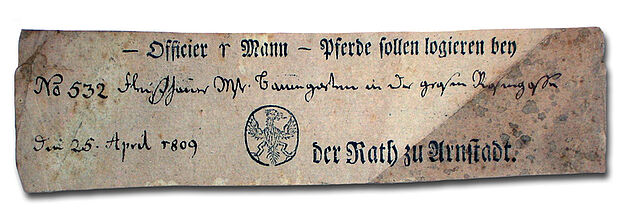 — Officier 1 Mann — Pferde sollen logieren bey
No 532 Fleischhauer Mstr. Baumgarten in der grosen Rosengasse
Den 25. April 1809
der Rath zu Arnstadt.